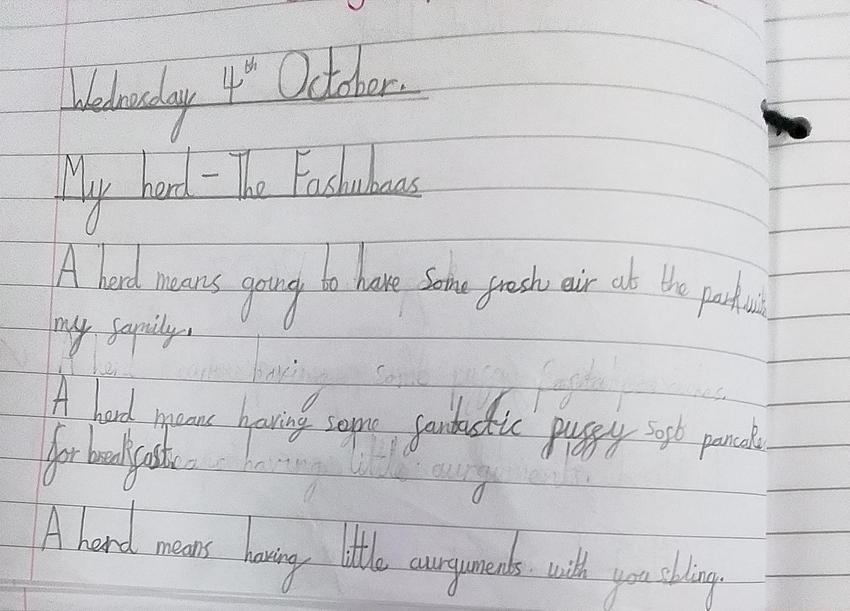 Wednesday 4th October.
My herd - The Fashubaas
A herd means going to have some fresh air at the park with
my family.
A herd means having some fantastic puffy soft pancake
for breakfast
A herd means having little aurguments with you sbling.